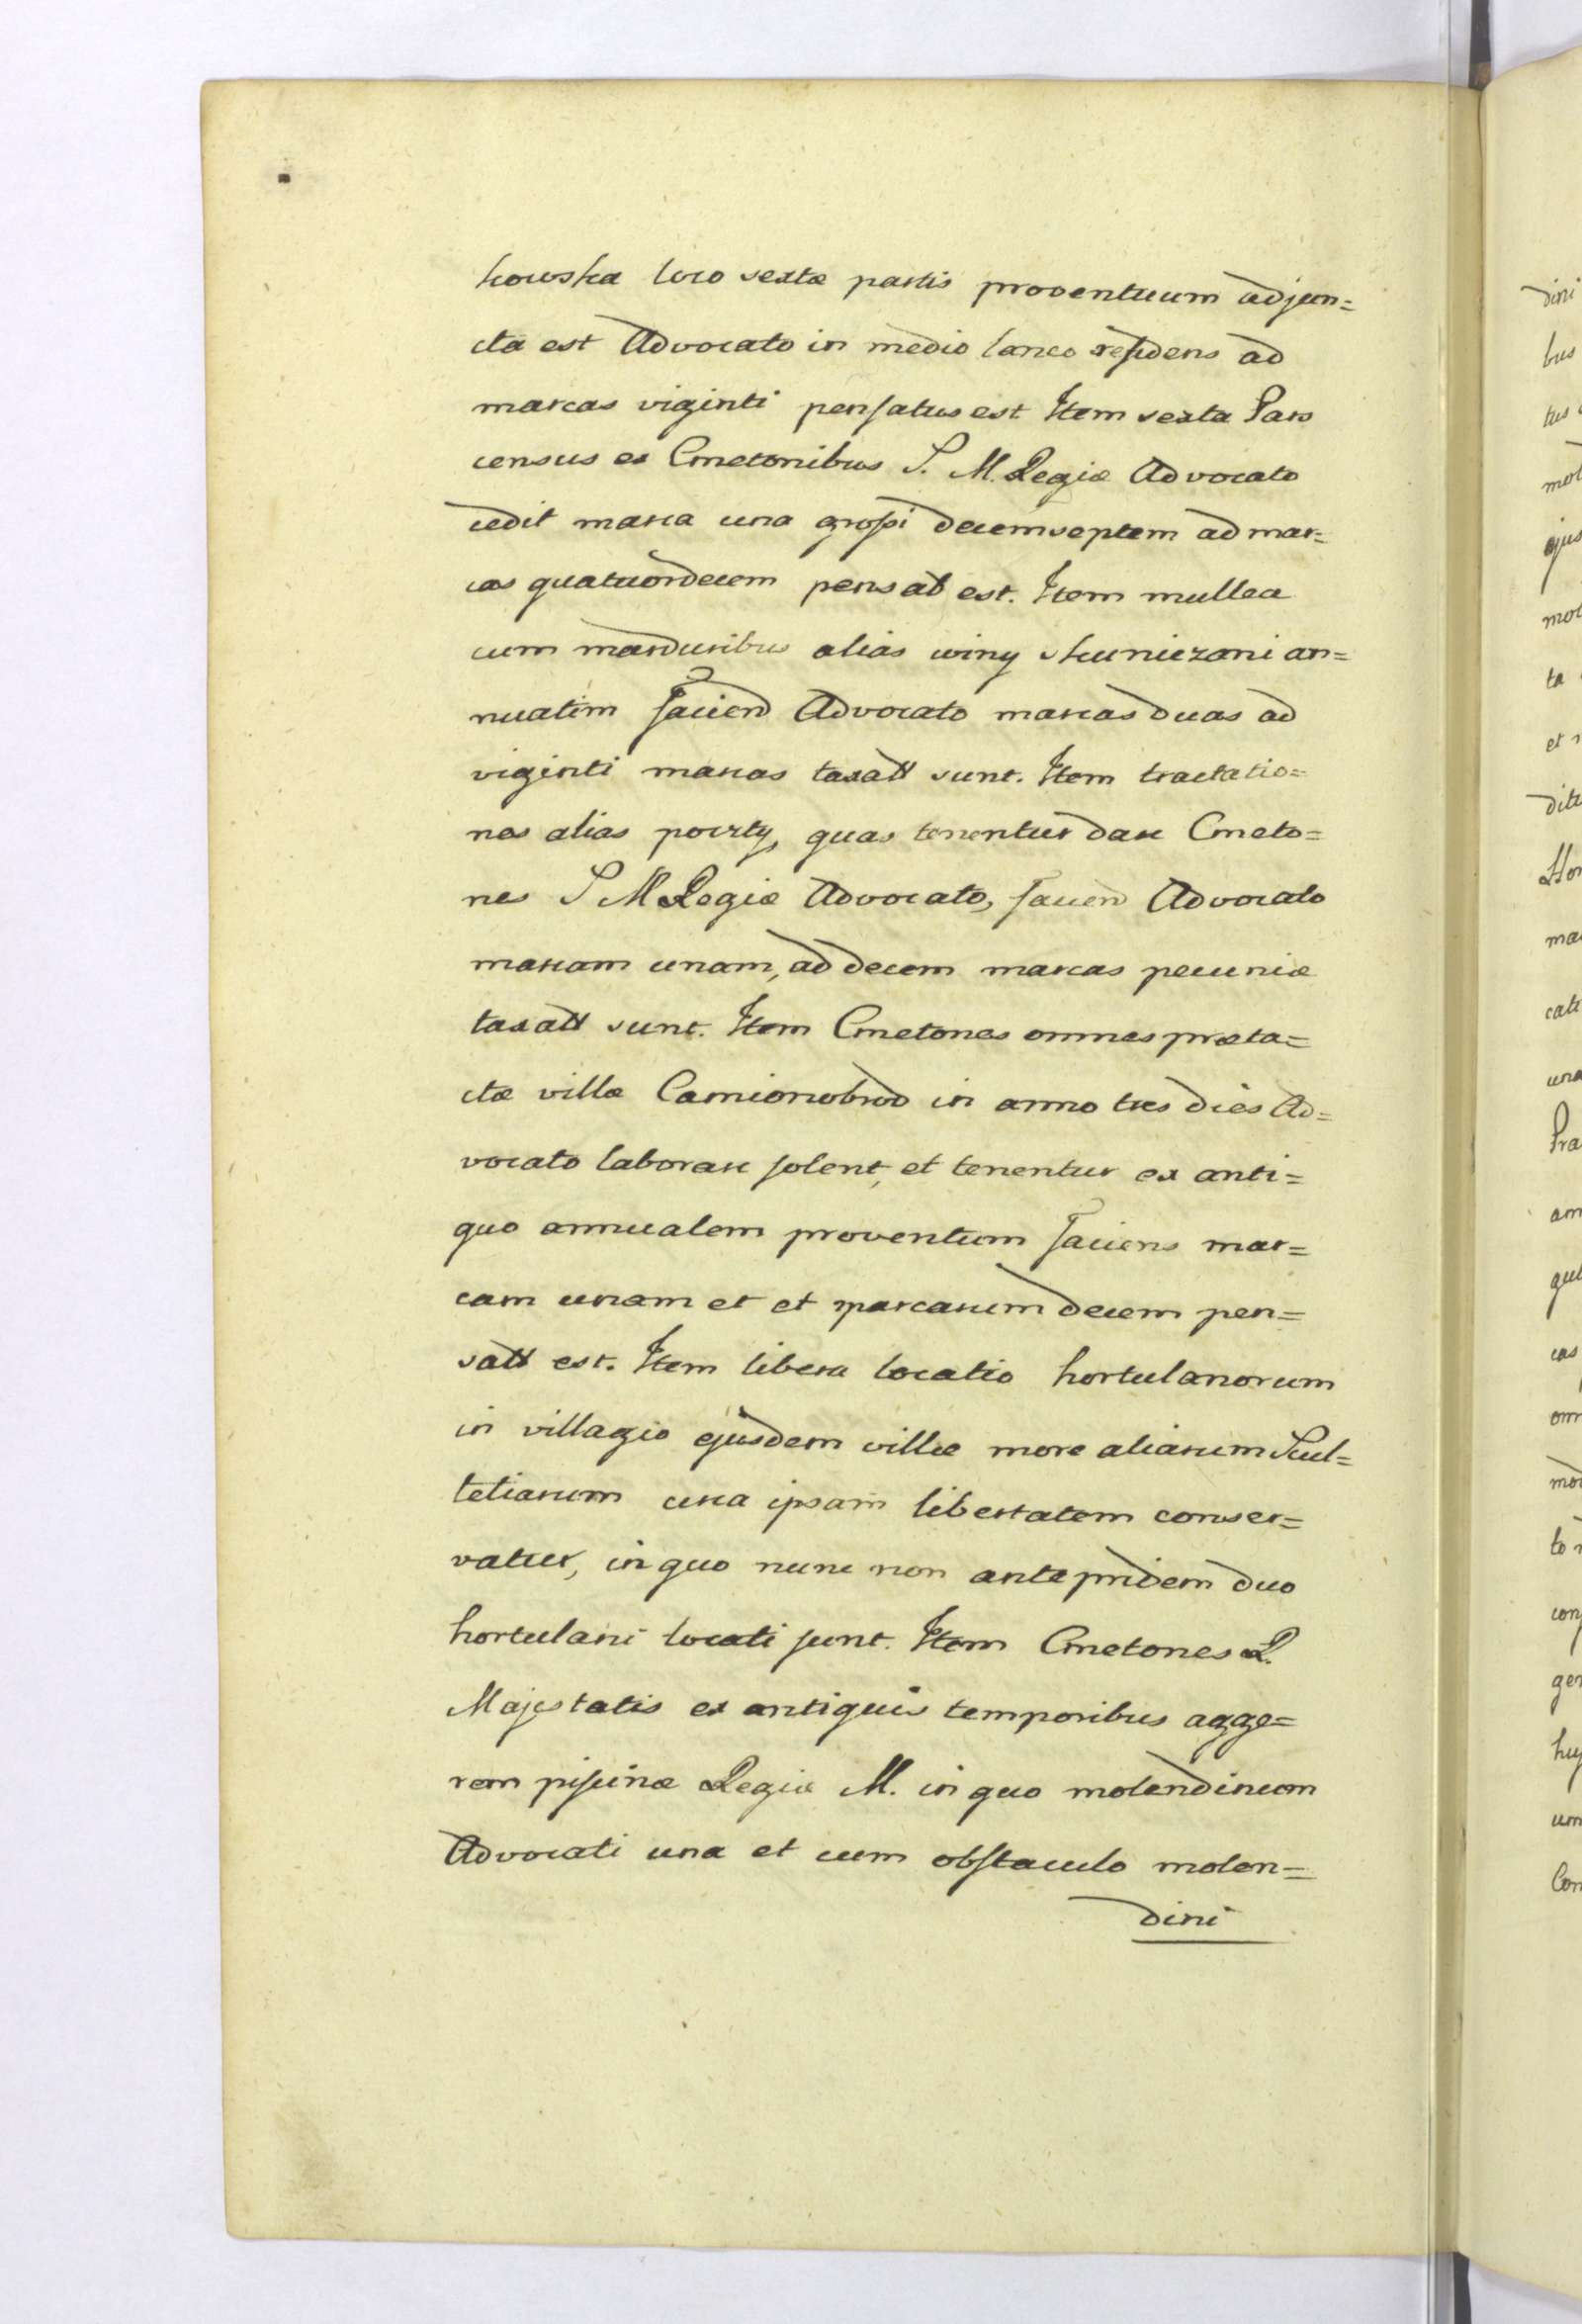 kowska loco sextæ partis proventuum adjun=
cta est Advocato in medio laneo residens ad
marcas viginti pensatus est Item sexta Pars
census ex Cmetonibus S. M. Regiæ Advocato
cedit marca una grossi decemseptem ad mar=
cas quatuordecem pensat est. Item mulla
cum marduribus alias winy skuniezani an=
nuatim faciend Advocato marcas duas ad
viginti marcas taxatt sunt. Item tractatio=
nes alias poczty, quas tenentur dare Cmeto=
nes S M Regiæ Advocato, facien Advocato
marcam unam, ad decem marcas pecuniæ
taxatt sunt. Item Cmetones omnes præta=
ctæ villæ Camionobrod in anno tres dies Ad=
vocato laborare solent, et tenentur ex anti=
quo annualem proventum faciens mar=
cam unam et et marcarum decem pen=
satt est. Item libera locatio hortulanorum
in villagio ejusdem villæ more aliarum Scul=
tetiarum circa ipsam libertatem conser=
vatur, in quo nunc non antepridem duo
hortulani locati sunt. Item Cmetones R.
Majestatis ex antiquis temporibus agge=
rem piscinæ Regiæ M. in quo molendinum
Advocati una et cum obstaculo molen=
dini
dini
bus
tus
mol
ejus
mol
ta
et
ditu
ma
cat
una
Pra
am
cas
om
to
con
ger
um
Con